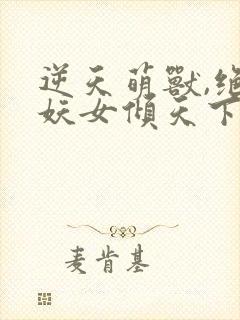 逆天萌獸,絕
妖女傾天下
麦肯基